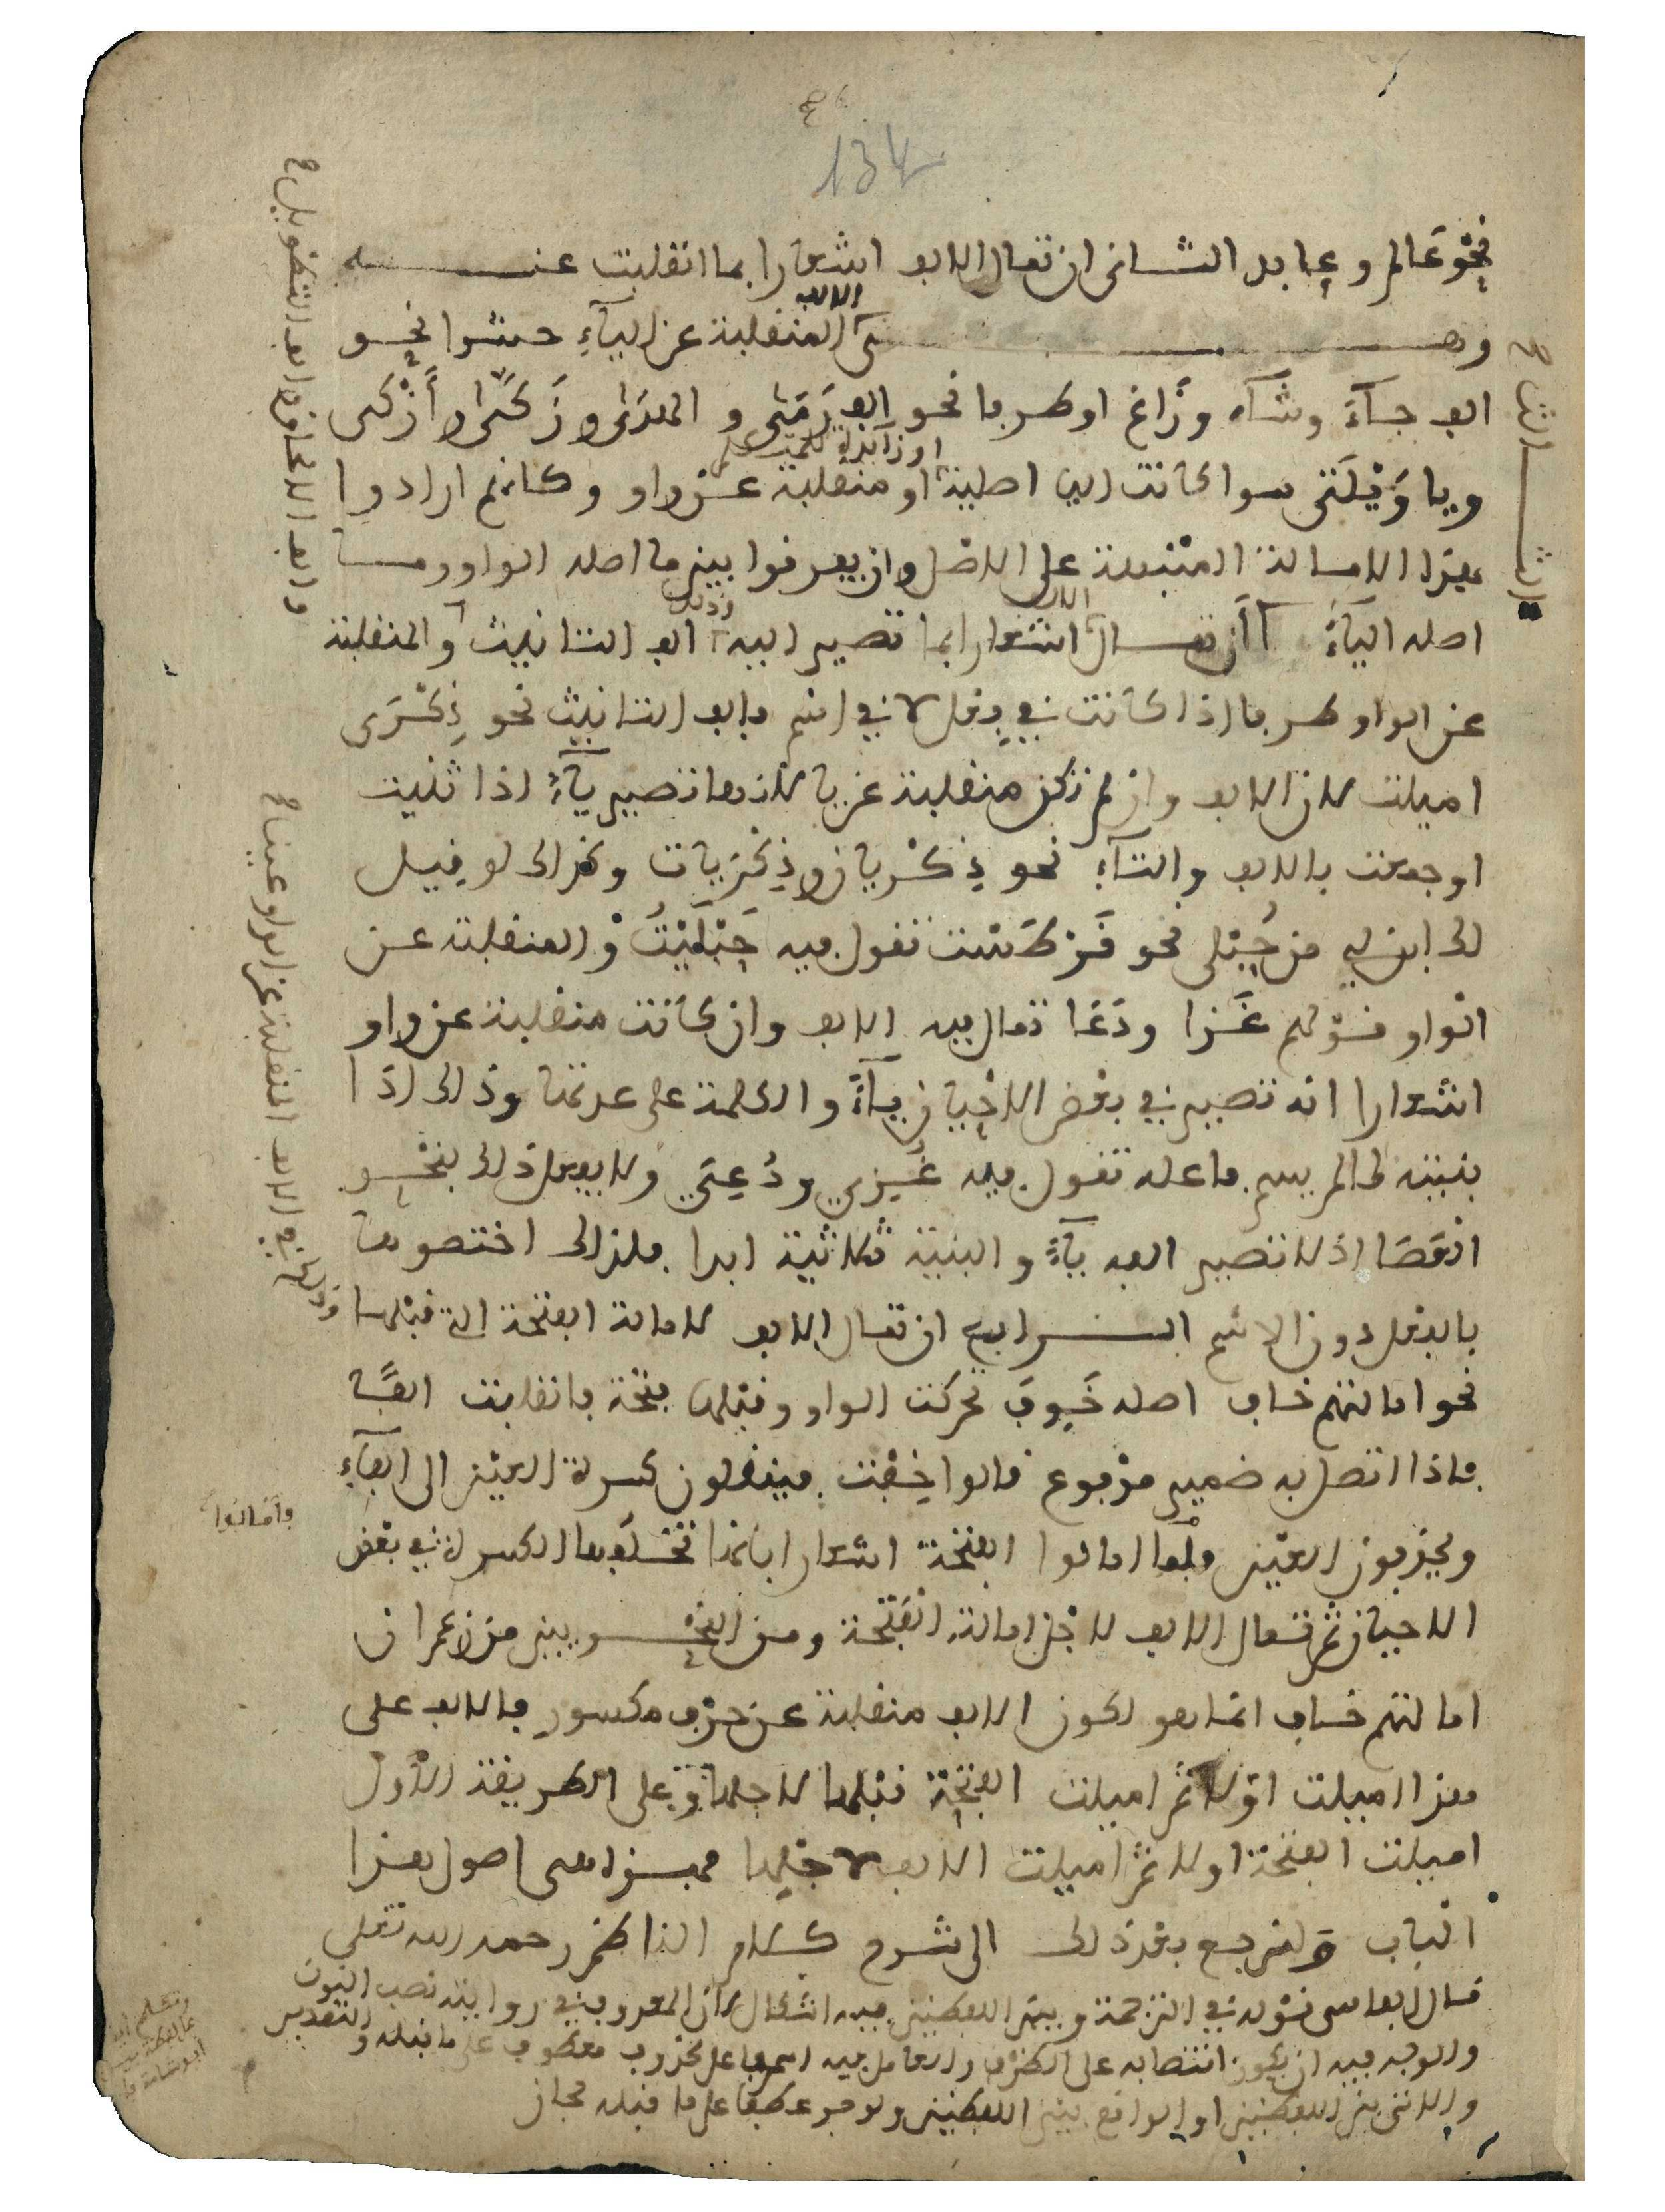 134
نحو عالم وعابد الثاني ان تمال الالف اشعارا بما انقلبت عنه
وهى الالف المنقلبة عن الياء حشوا نحو
الف جاء وشاء وزاغ او طرفا نحو الف رمى و الهدى وزكى وأزكى
ويا ويلتى سوا كانت اليا اصلية او زائدة للمتكلم او منقلبة عن واو وكانهم ارادوا
بهذا الامالة المنبهة على الاصل وان يعرفوا بين ما اصله الواو وما
اصله الياء الثالث أن تمال الالف اشعارا بما تصير اليه وذلك الف التانيث والمنقلبة
عن الواو طرفا اذا كانت في فعل لا في اسم فالف التانيث نحو ذكرى
اميلت لان الالف وان لم تكن منقلبة عن يا لانها تصير ياء اذا ثنيت
او جمعت بالالف والتاء نحو ذكريان وذكريات وكذلك لو قيل
لك ابن لي من حبلى نحو قرطست تقول فيه حبليت والمنقلبة عن
الواو قولهم غزا ودعا تمال فيه الالف وان كانت منقلبة عن واو
اشعارا انه تصير في بعض الاحيان ياء والكلمة على عدتها وذلك اذا
بنيته لما لم يسم فاعله تقول فيه غزي ودعي ولا يفعل ذلك بنحو
العصا اذ لا تصير الفه ياء والبنية ثلاثية ابدا فلذلك اختصوها
بالفعل دون الاسم الرابع ان تمال الالف لامالة الفتحة التي قبلها
نحو امالتهم خاف اصله خوف تحركت الواو وقبلها فتحة فانقلبت الفا
فاذا اتصل به ضمير مرفوع قالوا خفت فينقلون كسرة العين الى الفاء
ويحذفون العين فلما امالوا الفتحة اشعارا بانها تخلفها الكسرة في بعض
الاحيان ثم تمال الالف لاجل امالة الفتحة ومن النحويين من زعم ان
امالتهم خاف انما هو لكون الالف منقلبة عن حرف مكسور فالالف على
هذا اميلت اولا ثم اميلت الفتحة قبلها لاجلها وعلى الطريقة الأول
اميلت الفتحة اولا ثم اميلت الالف لاجلها فهذا هى اصول هذا
الباب ولنرجع بعد ذلك الى شرح كلام الناظم رحمه الله تعلى
قال الفاسى قوله في الترجمة وبين اللفظين فيه اشكال لان المعروف في روايته نصب النون
والوجه فيه ان يكون انتصابه على الظرف والعامل فيه اسم فاعل محذوف معطوف على ما قبله والتقدير
والاتي بين اللفظين او الواقع بين اللفظين ولو جر عطفا على ما قبله لجاز